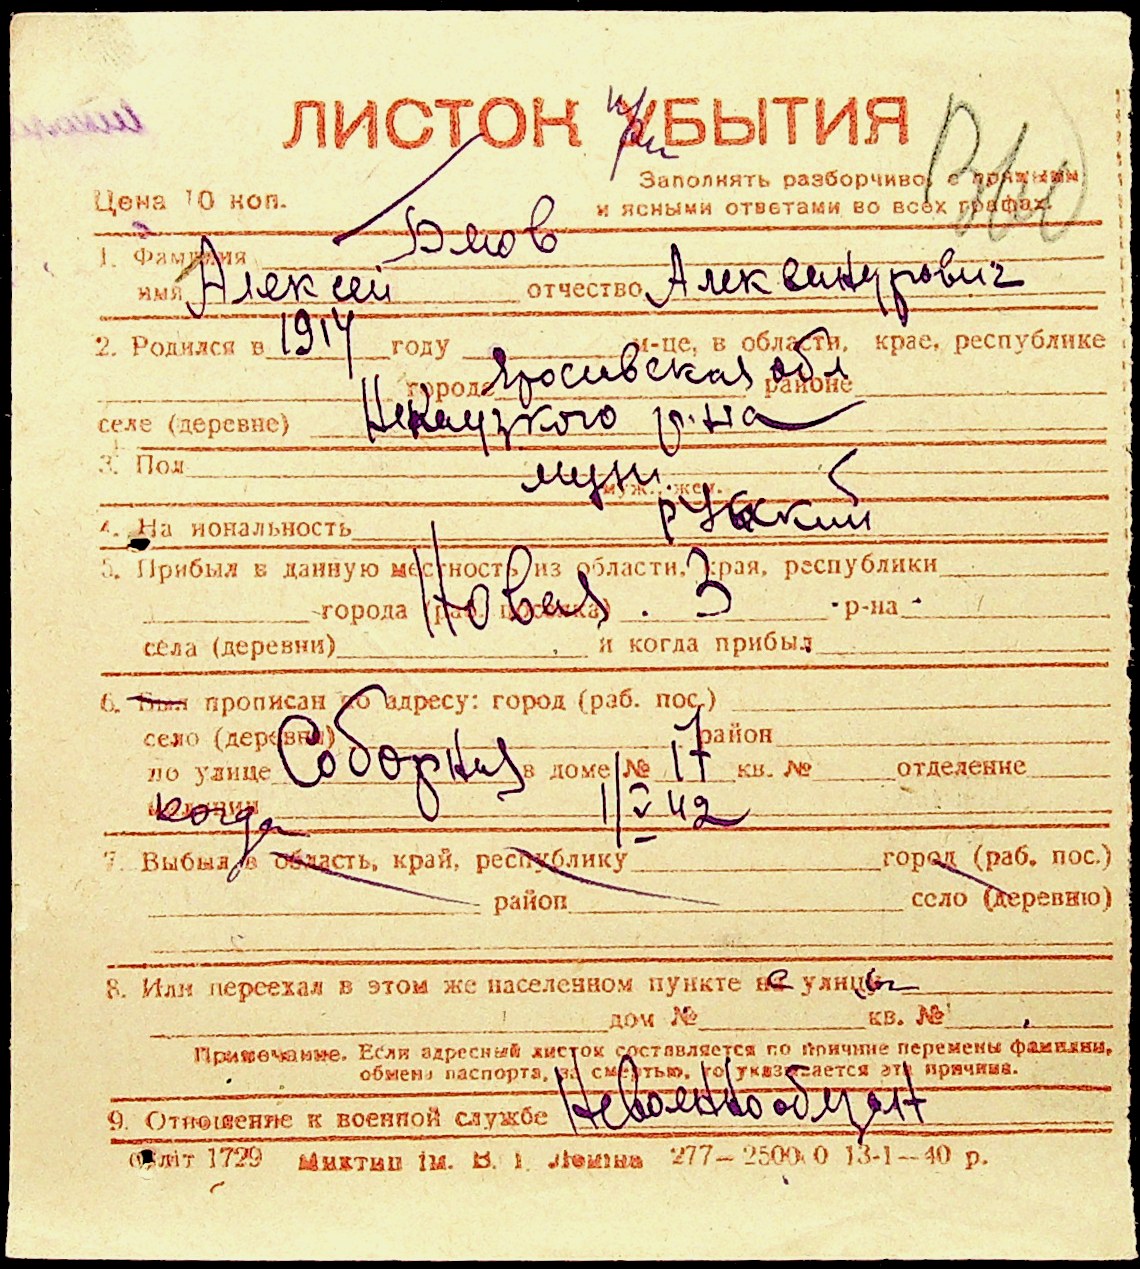 ЛИСТОК УБЫТИЯ
при
Цена 10 коп.
Заполнять разборчиво, с прямыми
и ясными ответами во всех графах.
1. Фамилия
имя Алексей отчество Александрович
2. Родился в 1914 году м-це, в области, крае, республике
города районе
селе (деревне) Некоузкого р-на
3. Пол муж.
муж., жен.
4. Национальность русский
5. Прибыл в данную местность из области, края, республики
города (раб. поселка) Новая 3 р-на
села (деревни) и когда прибыл
6. Был прописан по адресу: город (раб. пос.)
село (деревня) район
по улице Соборная в доме № 17 кв. № отделение
когда 1/V 42
7. Выбыл в область, край, республику город (раб. пос.)
район село (деревню)
8. Или переехал в этом же населенном пункте на улицу
дом № кв. №
Примечание. Если адресный листок составляется по причине перемены фамилии,
обмена паспорта, за смертью, то указывается эта причина.
9. Отношение к военной службе Невоеннообязан
Обліт 1729 Миктип ім. В. І. Леніна 277—2500 0 13-1—40 р.